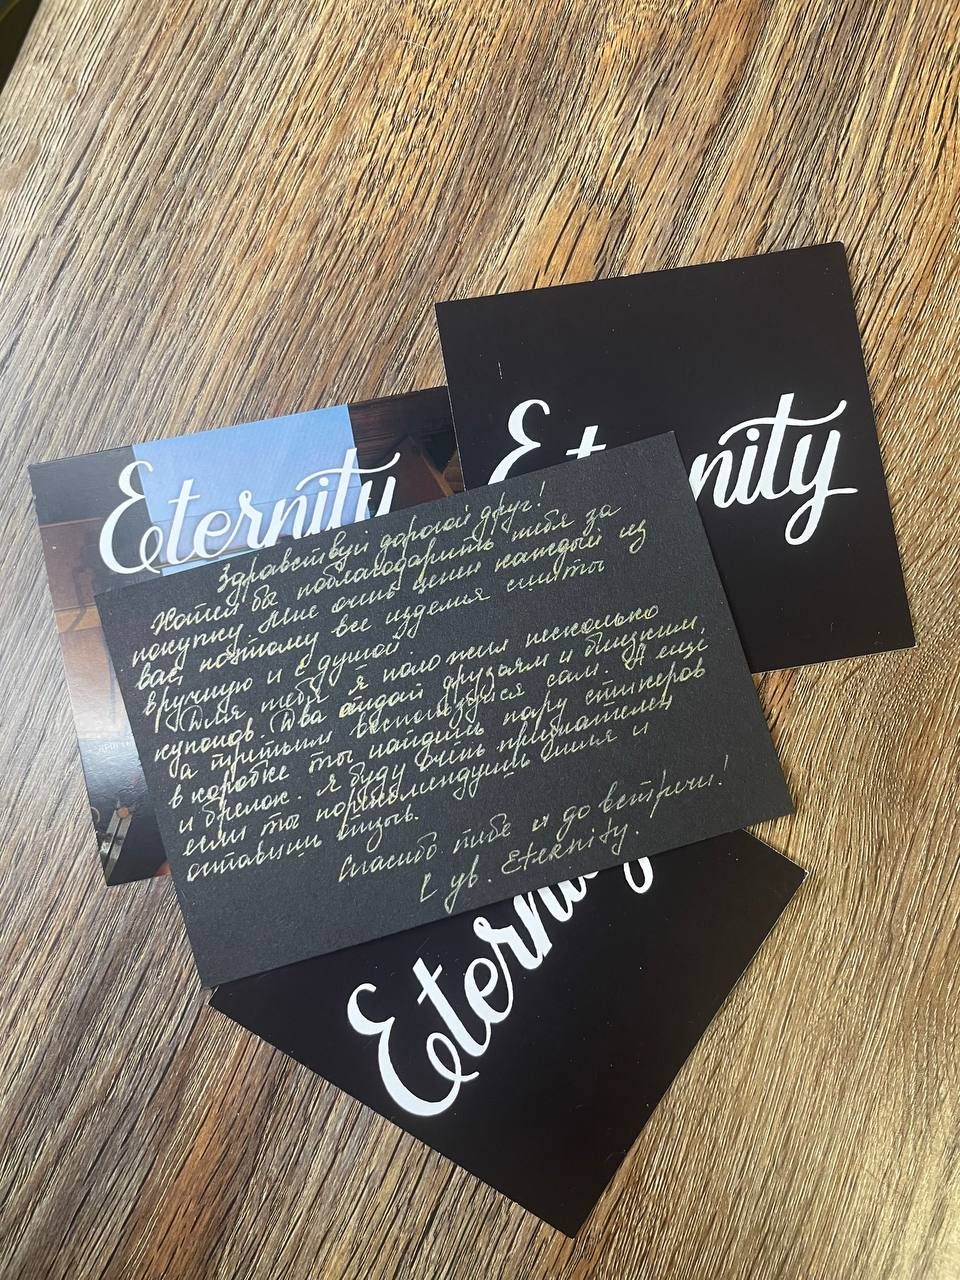 Eternity
Eternity
Здравствуй дорогой друг!
Хотел бы поблагодарить тебя за
покупку. Мне очень ценен каждый из
вас, поэтому все изделия сшиты
вручную и с душой.
Для тебя я положил несколько
купонов. Два отдай друзьям и близким,
а третьим воспользуйся сам. А ещё
в коробке ты найдёшь пару стикеров
и брелок. Я буду очень признателен
если ты порекомендуешь меня и
оставишь отзыв.
Спасибо тебе и до встречи!
С ув. Eternity.
Eternity